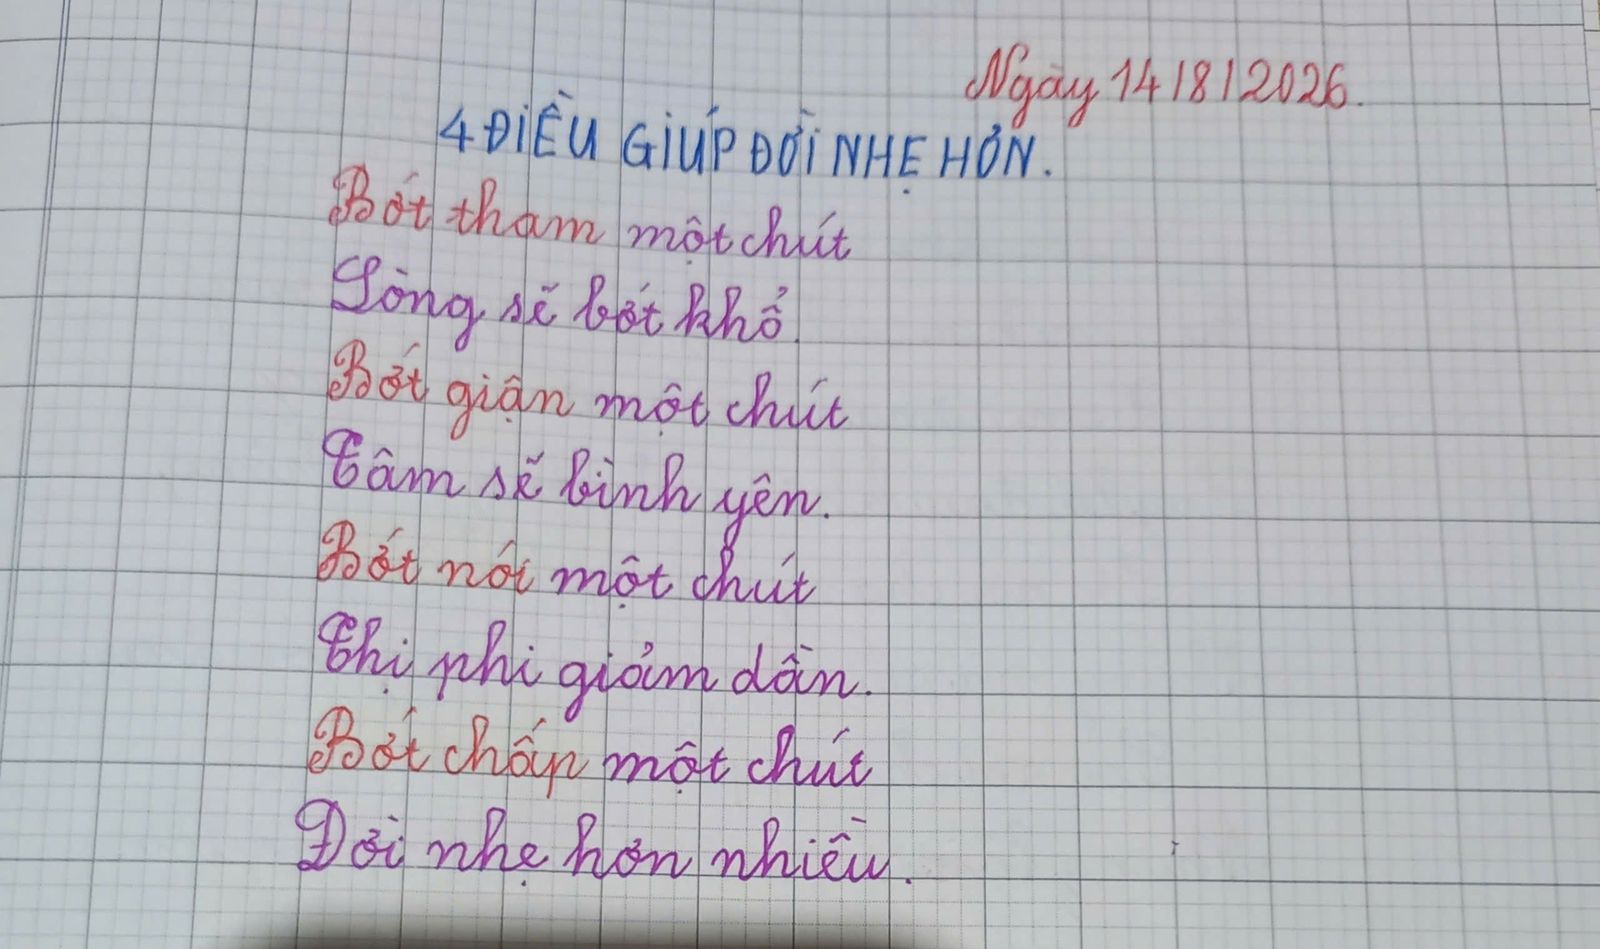 Ngày 14/8/2026.
4 ĐIỀU GIÚP ĐỜI NHẸ HƠN.
Bớt tham một chút
Lòng sẽ bớt khổ.
Bớt giận một chút
Tâm sẽ bình yên.
Bớt nói một chút
Thị phi giảm dần.
Bớt chấp một chút
Đời nhẹ hơn nhiều.